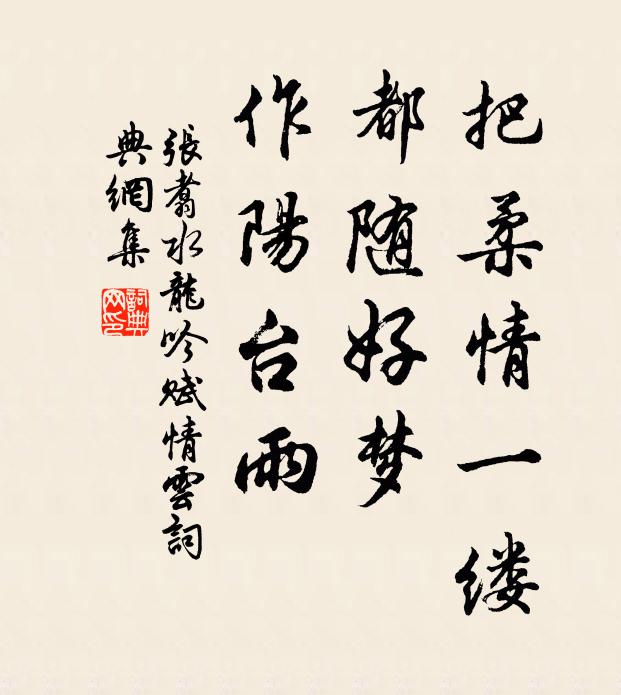 把柔情一缕
都随好梦
作陽台雨
張翥水龍吟賦情雲詞
典網集
詞典
网印